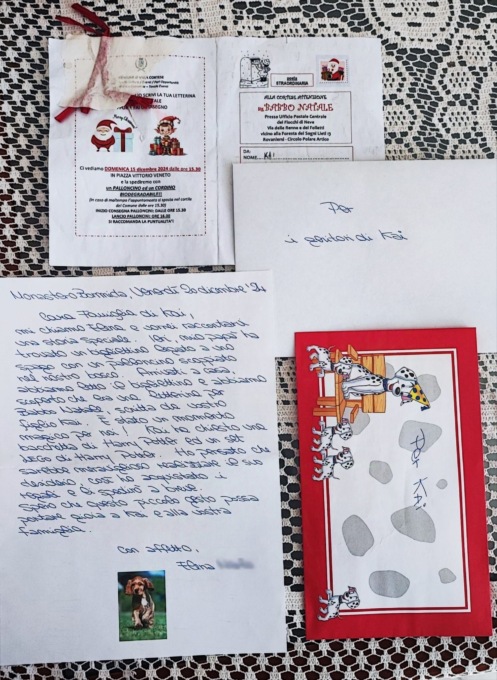 VERVI LA TUA LETTERINA
DOMENICA 15 dicembre 2024 dalle ore 15.30
IN PIAZZA VITTORIO VENETO
e la spediremo con
un PALLONCINO ed un CORDINO
BIODEGRADABILI!
(in caso di maltempo l'appuntamento si sposta nel cortile
del Comune dalle ore 15.30)
INIZIO CONSEGNA PALLONCINI: DALLE ORE 15.30
LANCIO PALLONCINI: ORE
SI RACCOMANDA LA PUNTUALITA'!
POSTA
STRAORDINARIA
ALLA CORTESE ATTENZIONE
BABBO NATALE
Presso Ufficio Postale Centrale
dei Fiocchi di Neve
Via delle Renne e dei Folletti
vicino alla Foresta dei Sogni Lieti
Rovaniemi - Circolo Polare Artico
DA:
NOME KAI
Per
i genitori di Kai
Monastero Bormida, Venerdì 20 dicembre '24
Cara Famiglia di Kai,
mi chiamo Elena e vorrei raccontarvi
una storia speciale. Ieri, mio papà ha
trovato un bigliettino legato a uno
spago con un palloncino scoppiato
nel nostro bosco. Arrivati a casa,
abbiamo letto il bigliettino e abbiamo
scoperto che era una letterina per
Babbo Natale, scritta dal vostro
figlio Kai. È stato un momento
magico per noi! Kai ha chiesto una
bacchetta di Harry Potter ed un set
LEGO di Harry Potter. Ho pensato che
sarebbe meraviglioso realizzare il suo
desiderio, così ho acquistato i
regali e li spedirò a breve.
Spero che questo piccolo gesto possa
portare gioia a Kai e alla vostra
famiglia.
Con affetto,
Elena
Per Kai